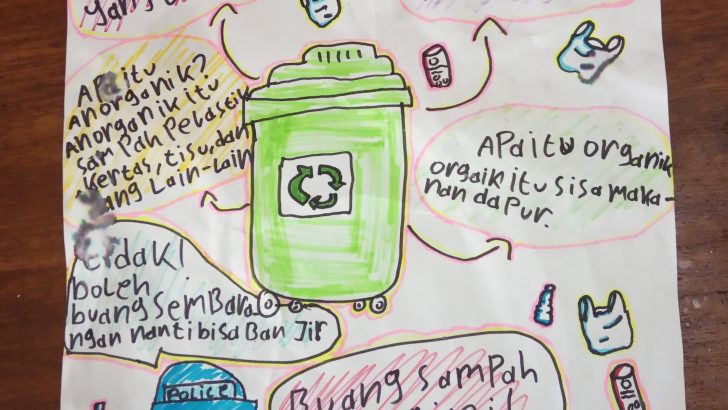 APa itu
anorganik?
anorganik itu
samPah Pelastik
kertas, tisu, dan
yang Lain-lain
APa itu organik
orgaik itu sisa maka-
nan daPur.
boleh
buang semBara
ngan nanti bisa Ban Jir
POLICE
Buang sampah